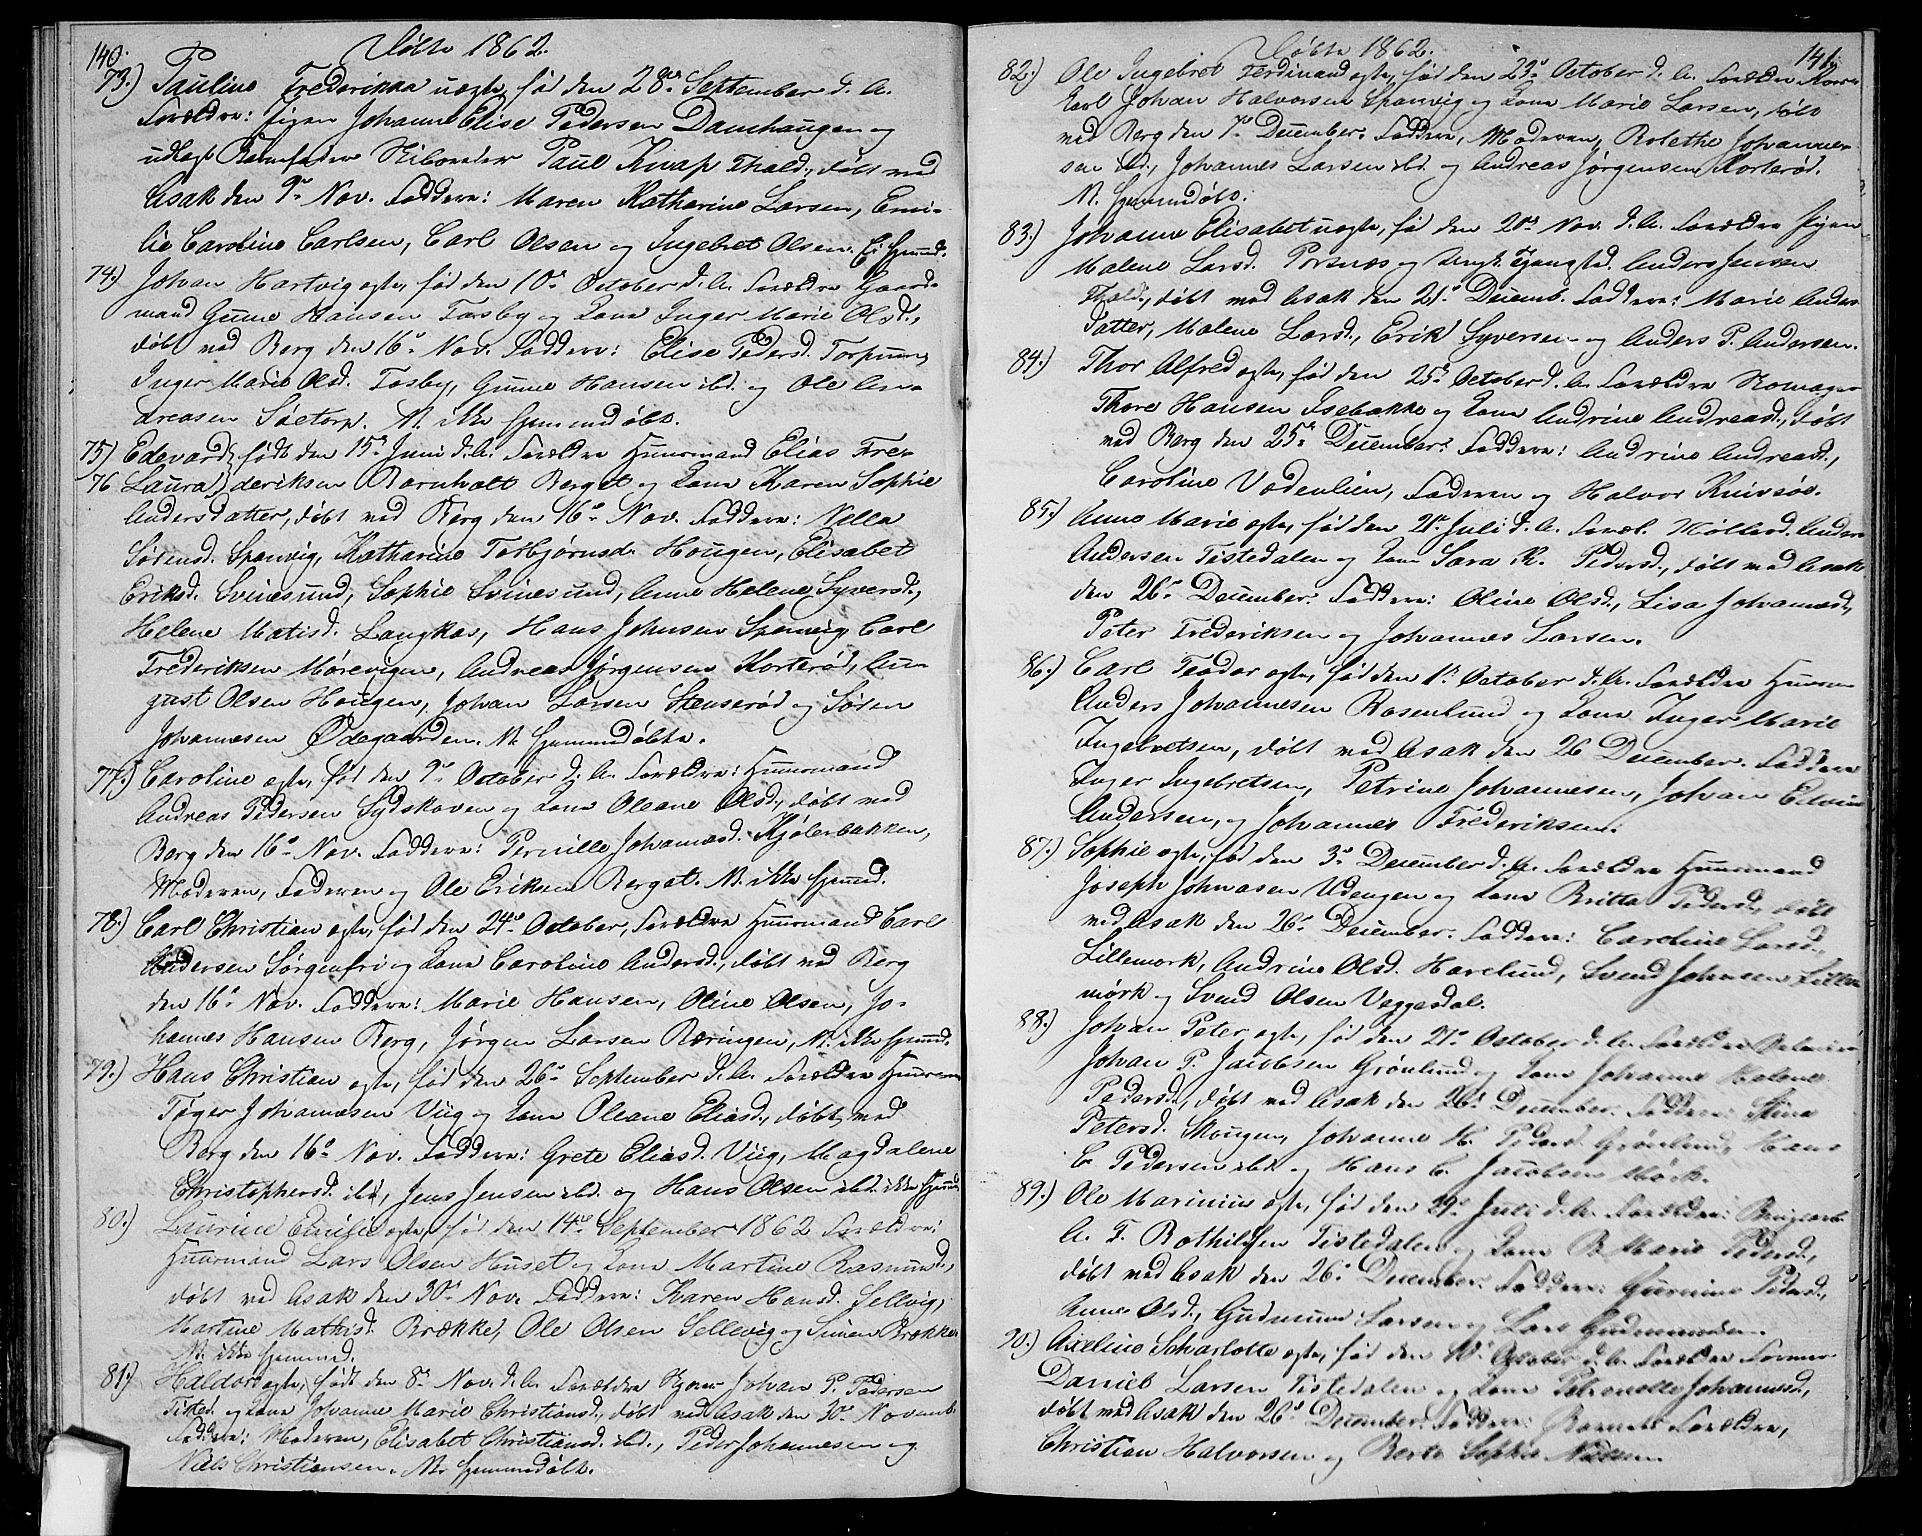 140.
Døbte 1862.
73.) Pauline Frederikka uægte, fød den 28de September d. A.
Forældre: Pigen Johanne Elise Pedersen Damhaugen og
udlagt Barnefader Paul Knap Fhald., døbt ved
Asak den 9de Nov. Faddere: Maren Katharine Larsen, Emi-
lie Caroline Carlsen, Carl Olsen og Ingebret Olsen. Ei hjemd.
74.) Johan Hartvig ægte, fød den 10de October d. A. Forældre Gaard-
mand Gunne Hansen Torsby og Kone Inger Marie Olsd.,
døbt ved Berg den 16de Nov. Faddere: Elise Pedersd. Torpum,
Inger Marie Olsd. Tosby, Gunne Hansen ibd. og Ole An-
dreasen Sætorp. N. ikke hjemmedøbt.
75) Edevard, født den 15de Juni d. A. Forældre Huusmand Elias Fre-
76 Laura, deriksen Bornholt Berget og Kone Karen Sophie
Andersdatter, døbt ved Berg den 16de Nov. Faddere: Nella
Sørensd. Sponvig, Katharine Torbjørnsd. Hougen, Elisabet
Eriksd. Svinesund, Sophie Svinesund, Anne Helene Syversd.,
Helene Matisd. Langkas, Hans Johnsen Sponvig, Carl
Frederiksen Mørevigen, Andreas Jørgensen Korterød, Au-
gust Olsen Hougen, Johan Larsen Stenserød og Søren
Johannesen Ødegaarden. N. hjemmedøbte.
77.) Caroline ægte, fød den 9de October d. A. Forældre: Huusmand
Andreas Pedersen Sydskoven og Kone Oleane Olsd., døbt ved
Berg den 16de Nov. Faddere: Pernille Johannesd. Kjølerbakken,
Moderen, Faderen og Ole Eriksen Berget. N. ikke hjemd.
78.) Carl Christian ægte, fød den 24de October, Forældre Huusmand Carl
Andersen Sørgenfri og Kone Caroline Andersd., døbt ved Berg
den 16de Nov. Faddere: Marie Hansen, Oline Olsen, Jo-
hannes Hansen Berg, Jørgen Larsen Røringen, N. ikke hjemd.
79.) Hans Christian ægte, fød den 26de September d. A. Forældre Huusm.
Tøger Johannesen Viig og Kone Oleane Eliasd., døbt ved
Berg den 16de Nov. Faddere: Grete Eliasd. Viig, Magdalene
Christophersd. ibd., Jens Jensen ibd. og Hans Olsen ibd. ikke hjemd.
80.) Laurine Emilie ægte, fød den 14de September 1862 Forældre:
Huusmand Lars Olsen Huset og Kone Martine Rasmusd.,
døbt ved Asak den 30te Nov. Faddere: Karen Hansd. Sellvig,
Martine Mathisd. Brække, Ole Olsen Sellevig og Simen Brække
N. ikke hjemmed.
81.) Haldor ægte, født den 8de Nov. d. A. Forældre Johan P. Pedersen
Tisted. og Kone Johanne Marie Christiansd., døbt ved Asak den 30te Novemb.
Faddere: Moderen, Elisabet Christiansd. ibd., Peder Johannesen og
Niels Christiansen. N. hjemmedøbt.
141.
Døbte 1862.
82.) Ole Ingebret Ferdinand ægte, fød den 23de October d. A. Forældre
Carl Johan Halvorsen Sponvig og Kone Marie Larsen, døbt
ved Berg den 7de December. Faddere, Moderen, Bolethe Johanne-
sen ibd., Johannes Larsen ibd. og Andreas Jørgensen Korterød.
N. hjemmedøbt.
83.) Johanne Elisabet uægte, fød den 20de Nov. d. A. Forældre Pigen
Malene Larsd. Porsnæs og Anders Jensen
Fhald., døbt ved Asak den 21de Decemb. Faddere: Marie Anders
datter, Malene Larsd., Erik Syversen og Anders P. Andersen.
84.) Thor Alfred ægte, fød den 25de October d. A. Forældre Skomager
Thore Hansen Isebakke og Kone Andrine Andreasd., døbt
ved Berg den 25de December. Faddere: Andrine Andreasd.,
Caroline Vedenlien, Faderen og Halvor Knivsøe.
85.) Anne Marie ægte, fød den 21de Juli d. A. Foræl. Møllerd. Anders
Andersen Tistedalen og Kone Sara K. Pedersd., døbt ved Asak
den 26de December. Faddere: Oline Olsd., Lisa Johannesd.,
Peter Frederiksen og Johannes Larsen.
86.) Carl Teodor ægte, fød den 1de October d. A. Forældre Huusm.
Anders Johannesen Rosenlund og Kone Inger Marie
Ingebretsen, døbt ved Asak den 26 December. Faddere
Inger Ingebretsen, Petrine Johannesen, Johan Edvin
Andersen, og Johannes Frederiksen.
87.) Sophie ægte, fød den 3de December d. A. Forældre Huusmand
Joseph Johnasen Udengen og Kone Britta Pedersd., døbt
ved Asak den 26de December. Faddere: Caroline Larsd.
Lillemork, Andrine Olsd. Havelund, Svend Johnsen Lille-
mörk og Svend Olsen Veggesdal.
88.) Johan Peter ægte, fød den 21de October d. A. Forældre
Johan P. Jacobsen Grönlund og Kone Johanne Malene
Pedersd., døbt ved Asak den 26de December. Faddere: Stina
Petersd. Skougen, Johanne H. Pedersd. Grönlund, Hans
C. Pedersen ibd. og Hans C. Jacobsen Mörk.
89.) Ole Marinius ægte, fød den 29de Juli d. A. Forældre: Brugsarb.
A. F. Bothilsen Tistedalen og Kone B. Marie Pedersd.,
døbt ved Asak den 26de December. Faddere: Gurine Pedersd.,
Anne Olsd., Gudmun Larsen og Lars Gudmundsen.
90.) Axeline Scharlotte ægte, fød den 10de October d. A. Forældre Former
Daniel Larsen Tistedalen og Kone Petronelle Johannesd.,
døbt ved Asak den 26de December. Faddere: Barnets Forældre,
Christian Halvorsen og Berte Sophie Nilsen.